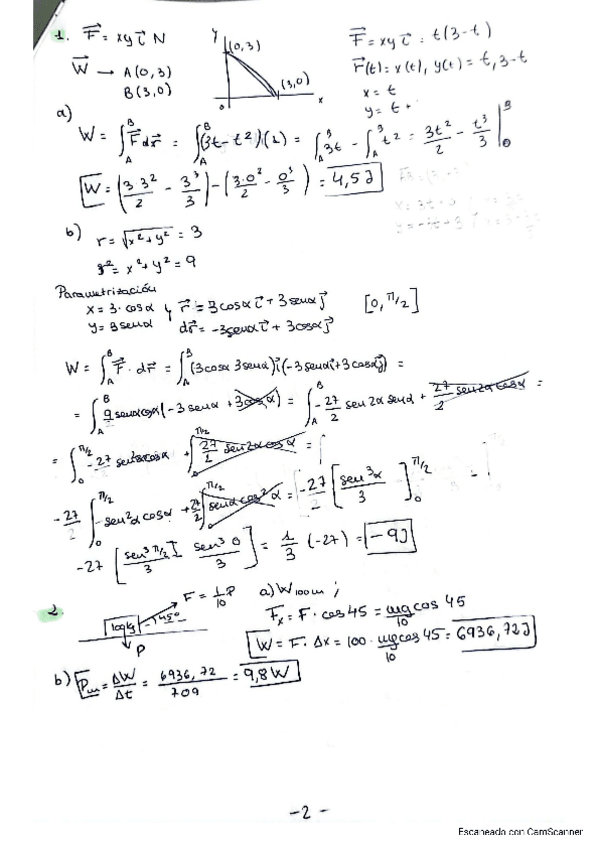 1. F⃗ = xy i⃗ N
W⃗ → A(0,3)
B(3,0)
y
(0,3)
(3,0)
0
x
F⃗ = xy i⃗ = t(3-t)
r⃗(t) = x(t), y(t) = t, 3-t
x = t
y = t +
a)
W = ∫_A^B F⃗ dr⃗ = ∫_A^B (3t - t²)(1) = ∫_A^B 3t - ∫_A^B t² = 3t²/2 - t³/3 |_0^3
W = (3·3²/2 - 3³/3) - (3·0²/2 - 0³/3) = 4,5J
b) r = √(x²+y²) = 3
r² = x²+y² = 9
Parametrización
x = 3·cosα y r⃗ = 3cosα i⃗ + 3senα j⃗ [0, π/2]
y = 3senα dr⃗ = -3senα i⃗ + 3cosα j⃗
W = ∫_A^B F⃗·dr⃗ = ∫_A^B (3cosα 3senα)i⃗ (-3senα i⃗ + 3cosα j⃗) =
= ∫_A^B 9 senα cosα (-3senα + 3cosα) = ∫_A^B -27/2 sen2α senα + 27/2 sen2α cosα =
= ∫_0^π/2 -27 sen²α cosα + ∫_0^π/2 27/2 sen2α cosα =
-27/2 ∫_0^π/2 -sen²α cosα + 27/2 ∫_0^π/2 senα cos²α = -27/2 [sen³α/3]_0^π/2
-27 [sen³π/2 / 3 - sen³0/3] = 1/3 (-27) = -9J
2.
100kg
45º
P
F = 1/10 P
a) W 100m ;
Fx = F·cos45 = mg/10 cos 45
W = F·Δx = 100·mg/10 cos45 = 6936,72J
b) Pm = ΔW/Δt = 6936,72/709 = 9,8W
-2-
Escaneado con CamScanner